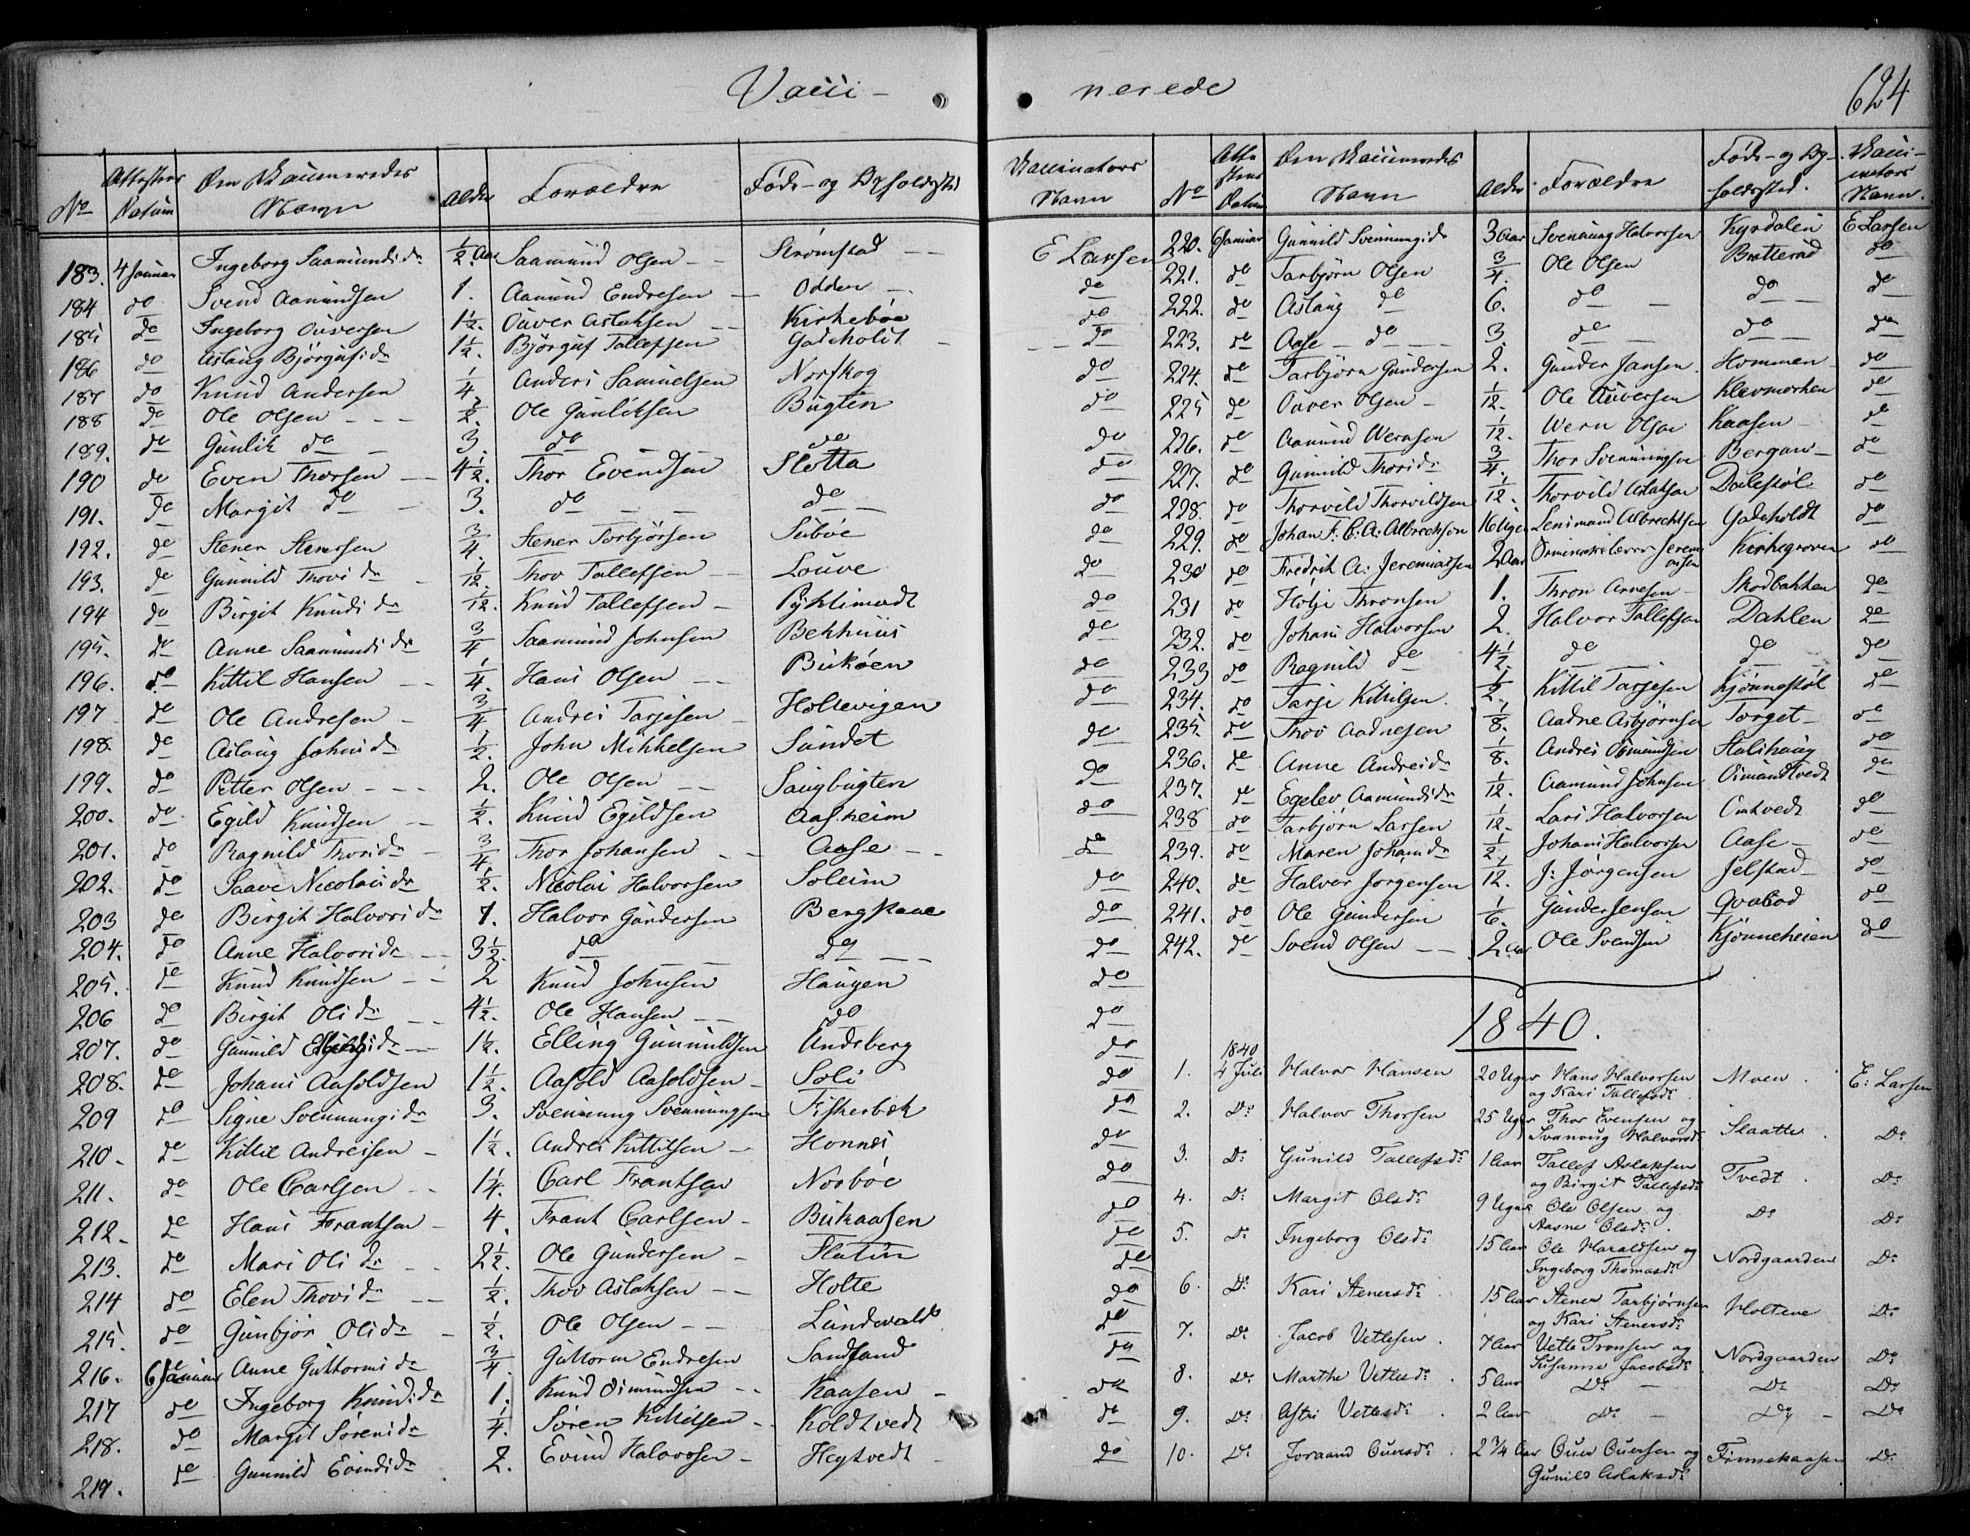 Vacci- nerede
624
No Attestens Datum Den Vaccineredes Navn Alder Forældre Føde- og Opholdssted Vaccinators Navn
183. 4 Januar Ingeborg Saamundsdr 1/2 Aar Saamund Olsen Strømstad E Larsen
184 do Svend Aamundsen 1. Aamund Endresen Odden do
185 do Ingeborg Ouversen 1 1/2. Ouver Aslaksen Kirkebøe do
186 do Aslaug Bjørgufsdr 1 1/2. Bjørguf Tollefsen Gadeholt do
187 do Knud Andersen 1/4 Anders Samuelsen Norskog do
188 do Ole Olsen Ole Gunliksen Bugten do
189. do Gunlik do 3. do do do
190 do Even Thorsen 4 1/2. Thor Evendsen Slotta do
191. do Margit do 3. do do do
192. do Stener Stenersen 3/4. Stener Torbjørsen Suboe do
193. do Gunnild Thovsdr 1/12. Thov Tollefsen Louve do
194 do Birgit Knudsdr 1/12. Knud Tollefsen do
195. do Anne Saamundsdr 3/4 Saamund Johnsen Bekhuus do
196. do Kittil Hansen 1/4. Hans Olsen Bukøen do
197 do Ole Andresen 3/4 Andres Tarjesen Hollevigen do
198. do Aslaug Johnsdr 1/2. John Mikkelsen Sundet do
199. do Petter Olsen 2. Ole Olsen Saugbugten do
200. do Egild Knudsen 1/2. Knud Egildsen Aasheim do
201. do Ragnild Thorsdr 3/4. Thor Johansen Aase do
202. do Saave Nicolaisdr 1/2. Nicolai Halvorsen Soleim do
203 do Birgit Halvorsdr 1. Halvor Gundersen Bergskaae do
204. do Anne Halvorsdr 3 1/2. do do do
205. do Knud Knudsen 2 Knud Johnsen Haugen do
206 do Birgit Olsdr 4 1/2. Ole Hansen do do
207. do Gunnild Ellingsdr 1 1/2. Elling Gunnuldsen Andsberg do
208. do Johans Aasoldsen 1 1/2. Aasold Aasoldsen Soli do
209 do Signe Svenningsdr 3. Svenning Svenningsen Fiskerbek do
210 do Kittil Andreisen 1 1/2. Andres Kittilsen Honnes do
211. do Ole Carlsen 1 1/4. Carl Frantsen Norboe do
212. do Hans Frantsen 4. Frant Carlsen Bukaasen do
213. do Mari Olsdr 2 1/2. Ole Gundersen Flatin do
214 do Elen Thovsdr 1/2. Thov Aslaksen Holte do
215. do Gunbjør Olsdr 1/2. Ole Olsen Lundevald do
216. 6 Januar Anne Guttormsdr 3/4. Guttorm Endresen Sandsund do
217 do Ingeborg Knudsdr 1. Knud Osmundsen Kaasen do
218. do Margit Sørensdr 1/4. Søren Kittilsen Koldtvedt do
219. do Gunnild Evindsdr 2. Evind Halvorsen Heytvedt do
No Attestens Datum Den Vaccineredes Navn Alder Forældre Føde- og Opholdssted. Vaccinators Navn.
220. 6 Januar Gunnild Svennungsdr 3 Aar Svennung Halvorsen Kyrdalen E Larsen
221. do Tarbjørn Olsen 3/4. Ole Olsen Bratterud do
222. do Aslaug do 6. do do do
223. do Aase do 3. do do do
224. do Tarbjørn Gundersen 2. Gunder Jansen Hommen do
225 do Ouver Olsen 1/12. Ole Ouversen Klevmorken do
226. do Aamund Wernsen 1/12. Wern Olsen Kaasen do
227. do Gunnild Thorsdr 3/4. Thor Svenningsen Bergan do
228. do Thorvild Thorvildsen 1/12. Thorvild Aslaksen Dalestøl do
229. do Johan F. C. A. Albrechtsen 16 Uger Lensmand Albrechtsen Gadeholdt do
230 do Fredrik A. Jeremiassen 2 Aar Jeremiassen Kirkegroven do
231 do Holje Thronsen 1. Thron Arnesen Skodbakken do
232. do Johans Halvorsen 2. Halvor Tollefsen Dahlen do
233 do Ragnild do 4 1/2 do do do
234. do Tarje Kittilsen. 1/2. Kittil Tarjesen Kjønnestøl do
235. do Thov Aadnesen 1/8. Aadne Asbjørnsen Torget do
236. do Anne Andreisdr 1/8. Andres Osmundsen Stalihaug do
237. do Egelev Aamundsdr 1/12. Aamund Johnsen do
238 do Tarbjørn Larsen 1/12. Lars Halvorsen Omtvedt do
239. do Maren Johansdr 1/2. Johans Halvorsen Aase do
240. do Halvor Jørgensen 1/12. J: Jørgensen Jelstad do
241. do Ole Gundersen 1/6. Gunder Jensen Qvabod do
242. do Svend Olsen 2 Aar Ole Svendsen Kjønneheien do
1840.
1. 1840 4 Juli Halvor Hansen 20 Uger Hans Halvorsen og Kari Tallefsdr. Moen. E: Larsen
2. Do Halvor Thorsen 25 Uger Thor Evensen og Svanoug Halvorsdr Slaatte. Do
3. Do Gunild Tallefsdr 1 Aar Tallef Aslaksen og Birgit Tallefsdr Tvedt. Do
4. Do Margit Olsdr 9 Uger Ole Olsen og Aasne Olsdr. Do Do
5. Do Ingeborg Olsdr 15 Aar Ole Haraldsen og Ingeborg Thomasdr Nordgaarden Do
6. Do Kari Stenersdr. 15 Aar Stener Tarbjørnsen og Kari Stenersdr Holtene Do
7. Do Jacob Vetlesen. 7 Aar Vetle Tronsen og Susanne Jacobsdr Nordgaarden Do
8. Do Marthe Vetlesdr. 5 Aar Do Do Do
9. Do Astri Vetlesdr. 2 Aar Do Do Do
10. Do Joraand Ouersdr. 2 3/4 Aar Ouer Ouersen og Gunild Aslaksdr Finnekaasen Do